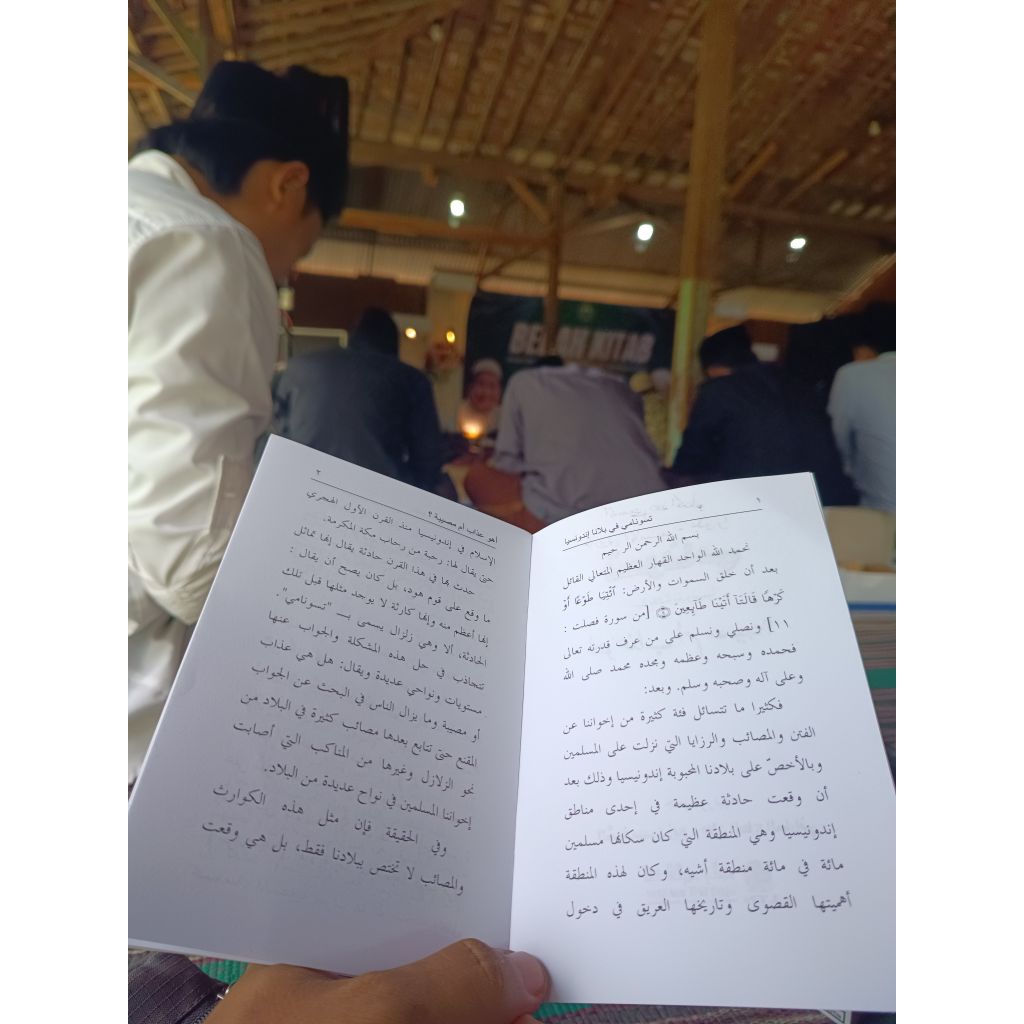 BEDAH KITAB
١
تسونامي في بلادنا إندونسيا
بسم الله الرحمن الر حيم
نحميد الله الواحد القهار العظيم المتعالي القائل
بعد أن خلق السموات والأرض: ٱئۡتِيَا طَوۡعًا أَوۡ
كَرۡهٗا قَالَتَآ أَتَيۡنَا طَآئِعِينَ [من سورة فصلت :
١١] ونصلي ونسلم على من عرف قدرته تعالى
فحمده وسبحه وعظمه ومجده محمد صلى الله
وعلى آله وصحبه وسلم. وبعد:
فكثيرا ما تتسائل فئة كثيرة من إخواننا عن
الفتن والمصائب والرزايا التي نزلت على المسلمين
وبالأخصّ على بلادنا المحبوبة إندونيسيا وذلك بعد
أن وقعت حادثة عظيمة في إحدى مناطق
إندونيسيا وهي المنطقة التي كان سكانها مسلمين
مائة في مائة منطقة أشيه، وكان لهذه المنطقة
أهميتها القصوى وتاريخها العريق في دخول
٢
اهو عذاب ام مصيبة ؟
الإسلام في إندونيسيا منذ القرن الأول الهجري
حتى يقال لها: رحبة من رحاب مكة المكرمة.
حدث بها في هذا القرن حادثة يقال إنها تماثل
ما وقع على قوم هود، بل كان يصح أن يقال :
إنها أعظم منه وإنها كارثة لا يوجد مثلها قبل تلك
الحادثة، ألا وهي زلزال يسمى بـ "تسونامي".
نتجاذب في حل هذه المشكلة والجواب عنها
مستويات ونواحي عديدة ويقال: هل هي عذاب
أو مصيبة وما يزال الناس في البحث عن الجواب
المقنع حتى تتابع بعدها مصائب كثيرة في البلاد من
نحو الزلازل وغيرها من المناكب التي أصابت
إخواننا المسلمين في نواح عديدة من البلاد.
وفي الحقيقة فإن مثل هذه الكوارث
والمصائب لا تختص ببلادنا فقط، بل هي وقعت